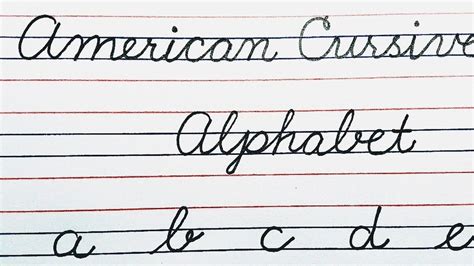 American Cursive
Alphabet
a b c d e